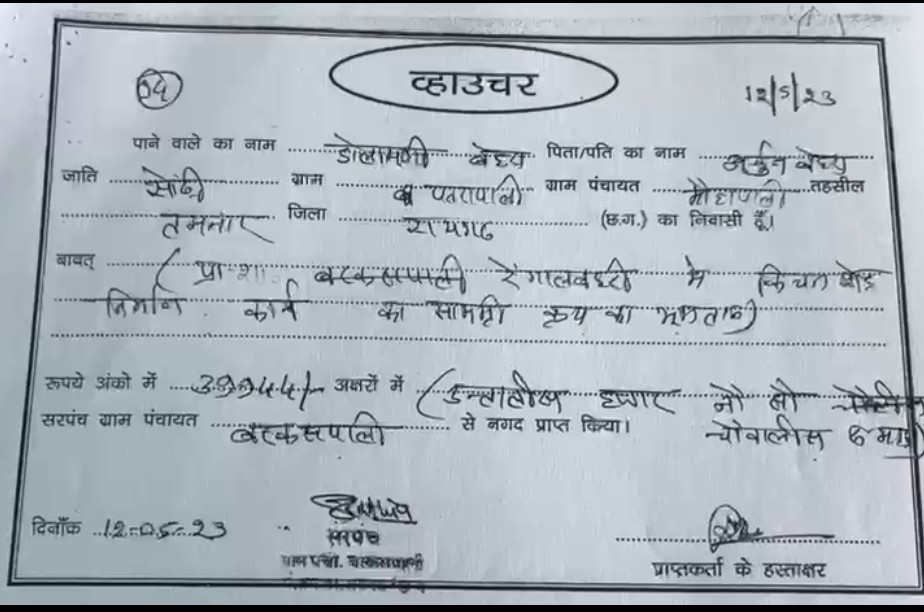 व्हाउचर
12/5/23
पाने वाले का नाम डोलामणी बेहरा पिता/पति का नाम अर्जुन बेहरा
जाति ग्राम पतरापाली ग्राम पंचायत मौहापाली तहसील
तमनार जिला रायगढ (छ.ग.) का निवासी हूँ।
बाबत् (प्रा.शा. बरकसपाली रेंगालबहरी में किचन शेड
निर्माण कार्य का सामग्री क्रय का भुगतान)
रूपये अंको में 39944/- अक्षरों में (उन्तालीस हजार नौ सौ
सरपंच ग्राम पंचायत बरकसपाली से नगद प्राप्त किया। चौवालीस रू मात्र)
दिनाँक 12-05-23
सरपंच
ग्राम पंचा. बरकसपाली
प्राप्तकर्ता के हस्ताक्षर